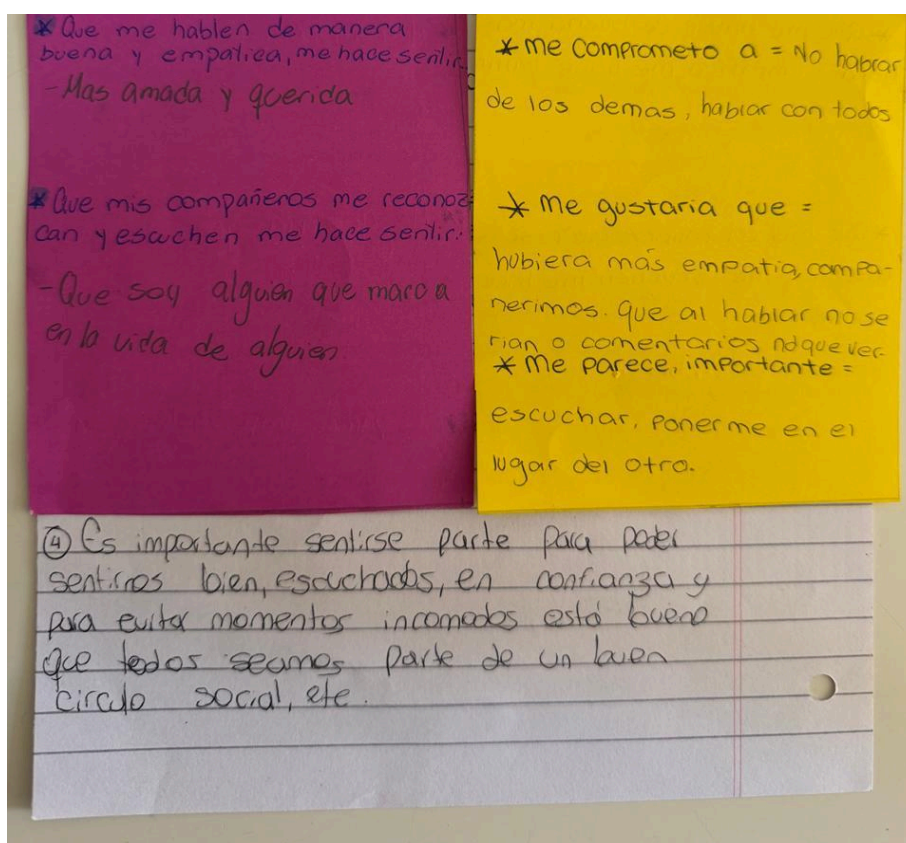 * Que me hablen de manera
buena y empatica, me hace sentir
- Mas amada y querida
* Que mis compañeros me reconoz
can y escuchen me hace sentir.
- Que soy alguien que marco a
en la vida de alguien.
* me comprometo a = No habrar
de los demas, hablar con todos
* me gustaria que =
hubiera más empatia, compa-
nerimos. que al hablar no se
rian o comentarios nd que ver.
* me parece, importante =
escuchar, ponerme en el
lugar del otro.
④ Es importante sentirse parte para poder
sentirnos bien, escuchados, en confianza y
para evitar momentos incomodos está bueno
que todos seamos parte de un buen
circulo social, etc.